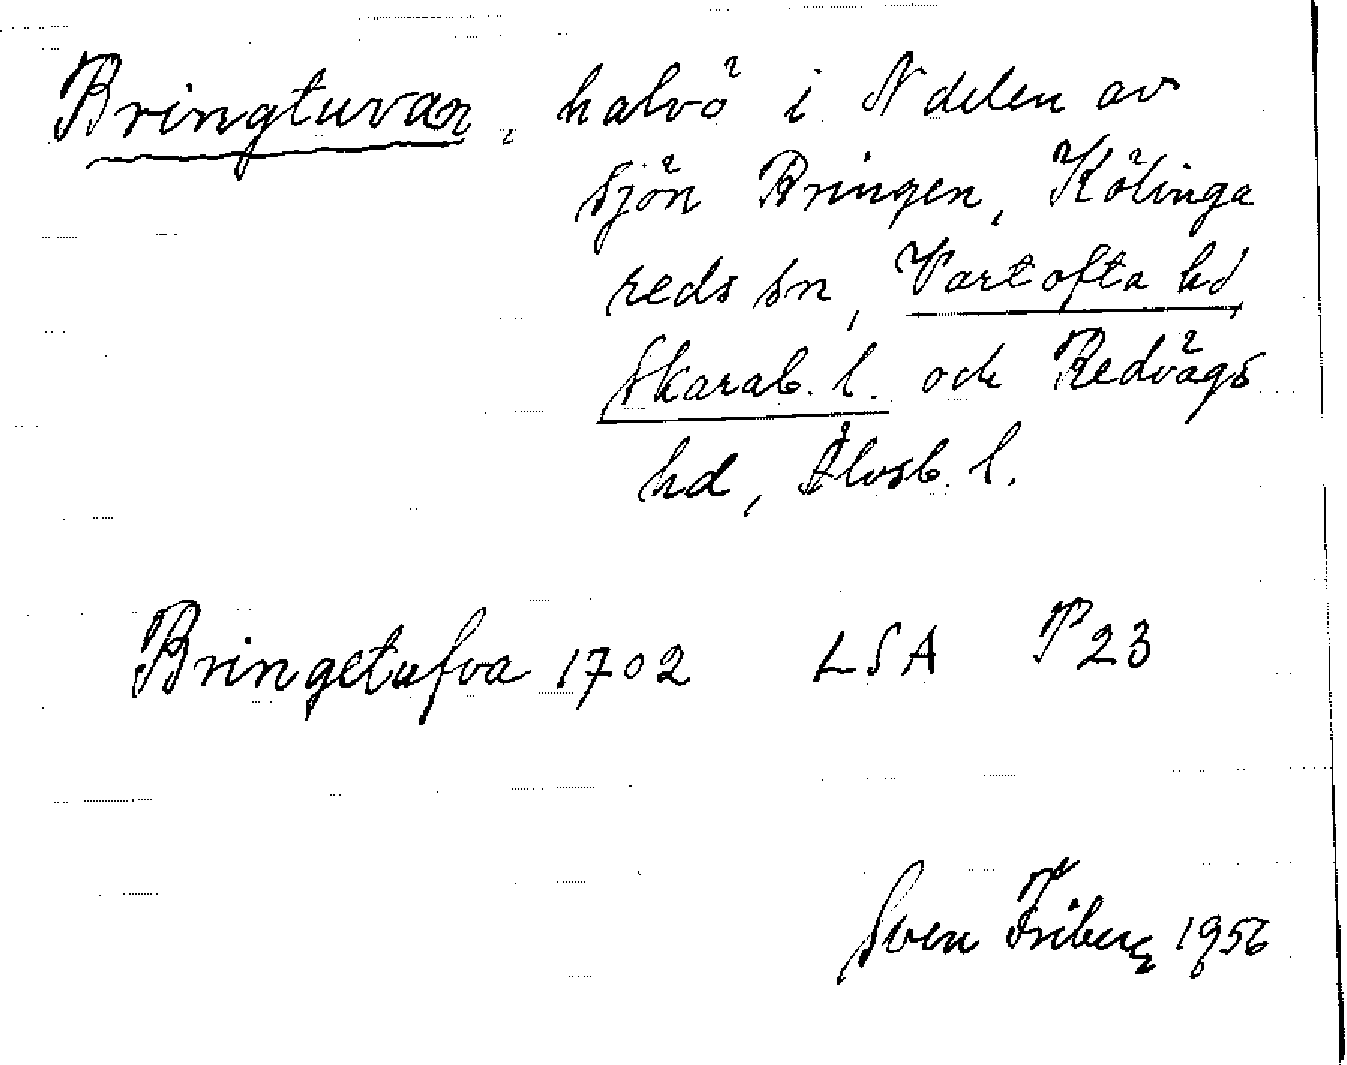 Bringtuvan, halvö i N delen av
sjön Bringen, Kölinga
reds sn, Vartofta hd,
Skarab. l. och Redvägs
hd, Älvsb. l.
Bringetufva 1702 LSA P23
Sven Friberg 1956